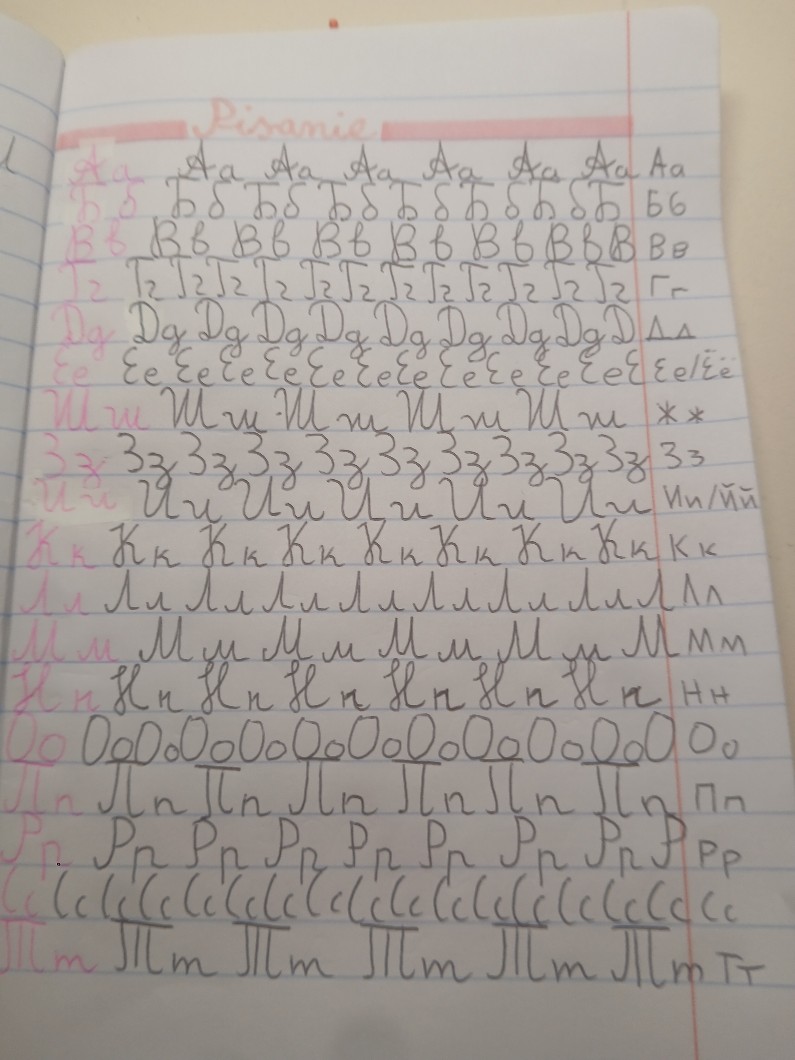 Pisanie
Аа Аа Аа Аа Аа Аа Аа Аа
Бб Бб Бб Бб Бб Бб Бб Б Бб
Вв Вв Вв Вв Вв Вв Вв В Вв
Гг Гг Гг Гг Гг Гг Гг Гг Гг Гг Гг Гг Гг
Дд Дд Дд Дд Дд Дд Дд Дд Дд Д Дд
Ее Ее Ее Ее Ее Ее Ее Ее Ее Ее Ее Ее Е Ее/Ёё
Шш Шш Шш Шш Шш Жж
Зз Зз Зз Зз Зз Зз Зз Зз Зз Зз Зз
Ии Ии Ии Ии Ии Ии Ии/Йй
Кк Кк Кк Кк Кк Кк Кк Кк Кк
Лл Лл Лл Лл Лл Лл Лл Лл Л Лл
Мм Мм Мм Мм Мм М Мм
Нн Нн Нн Нн Нн Нн Нн Нн
Оо Оо Оо Оо Оо Оо Оо Оо Оо Оо Оо О Оо
Пп Пп Пп Пп Пп Пп Пп Пп
Рр Рр Рр Рр Рр Рр Рр Рр Р Рр
Сс Сс Сс Сс Сс Сс Сс Сс Сс Сс Сс Сс Сс Сс Сс Сс Сс
Тт Тт Тт Тт Тт Тт Тт